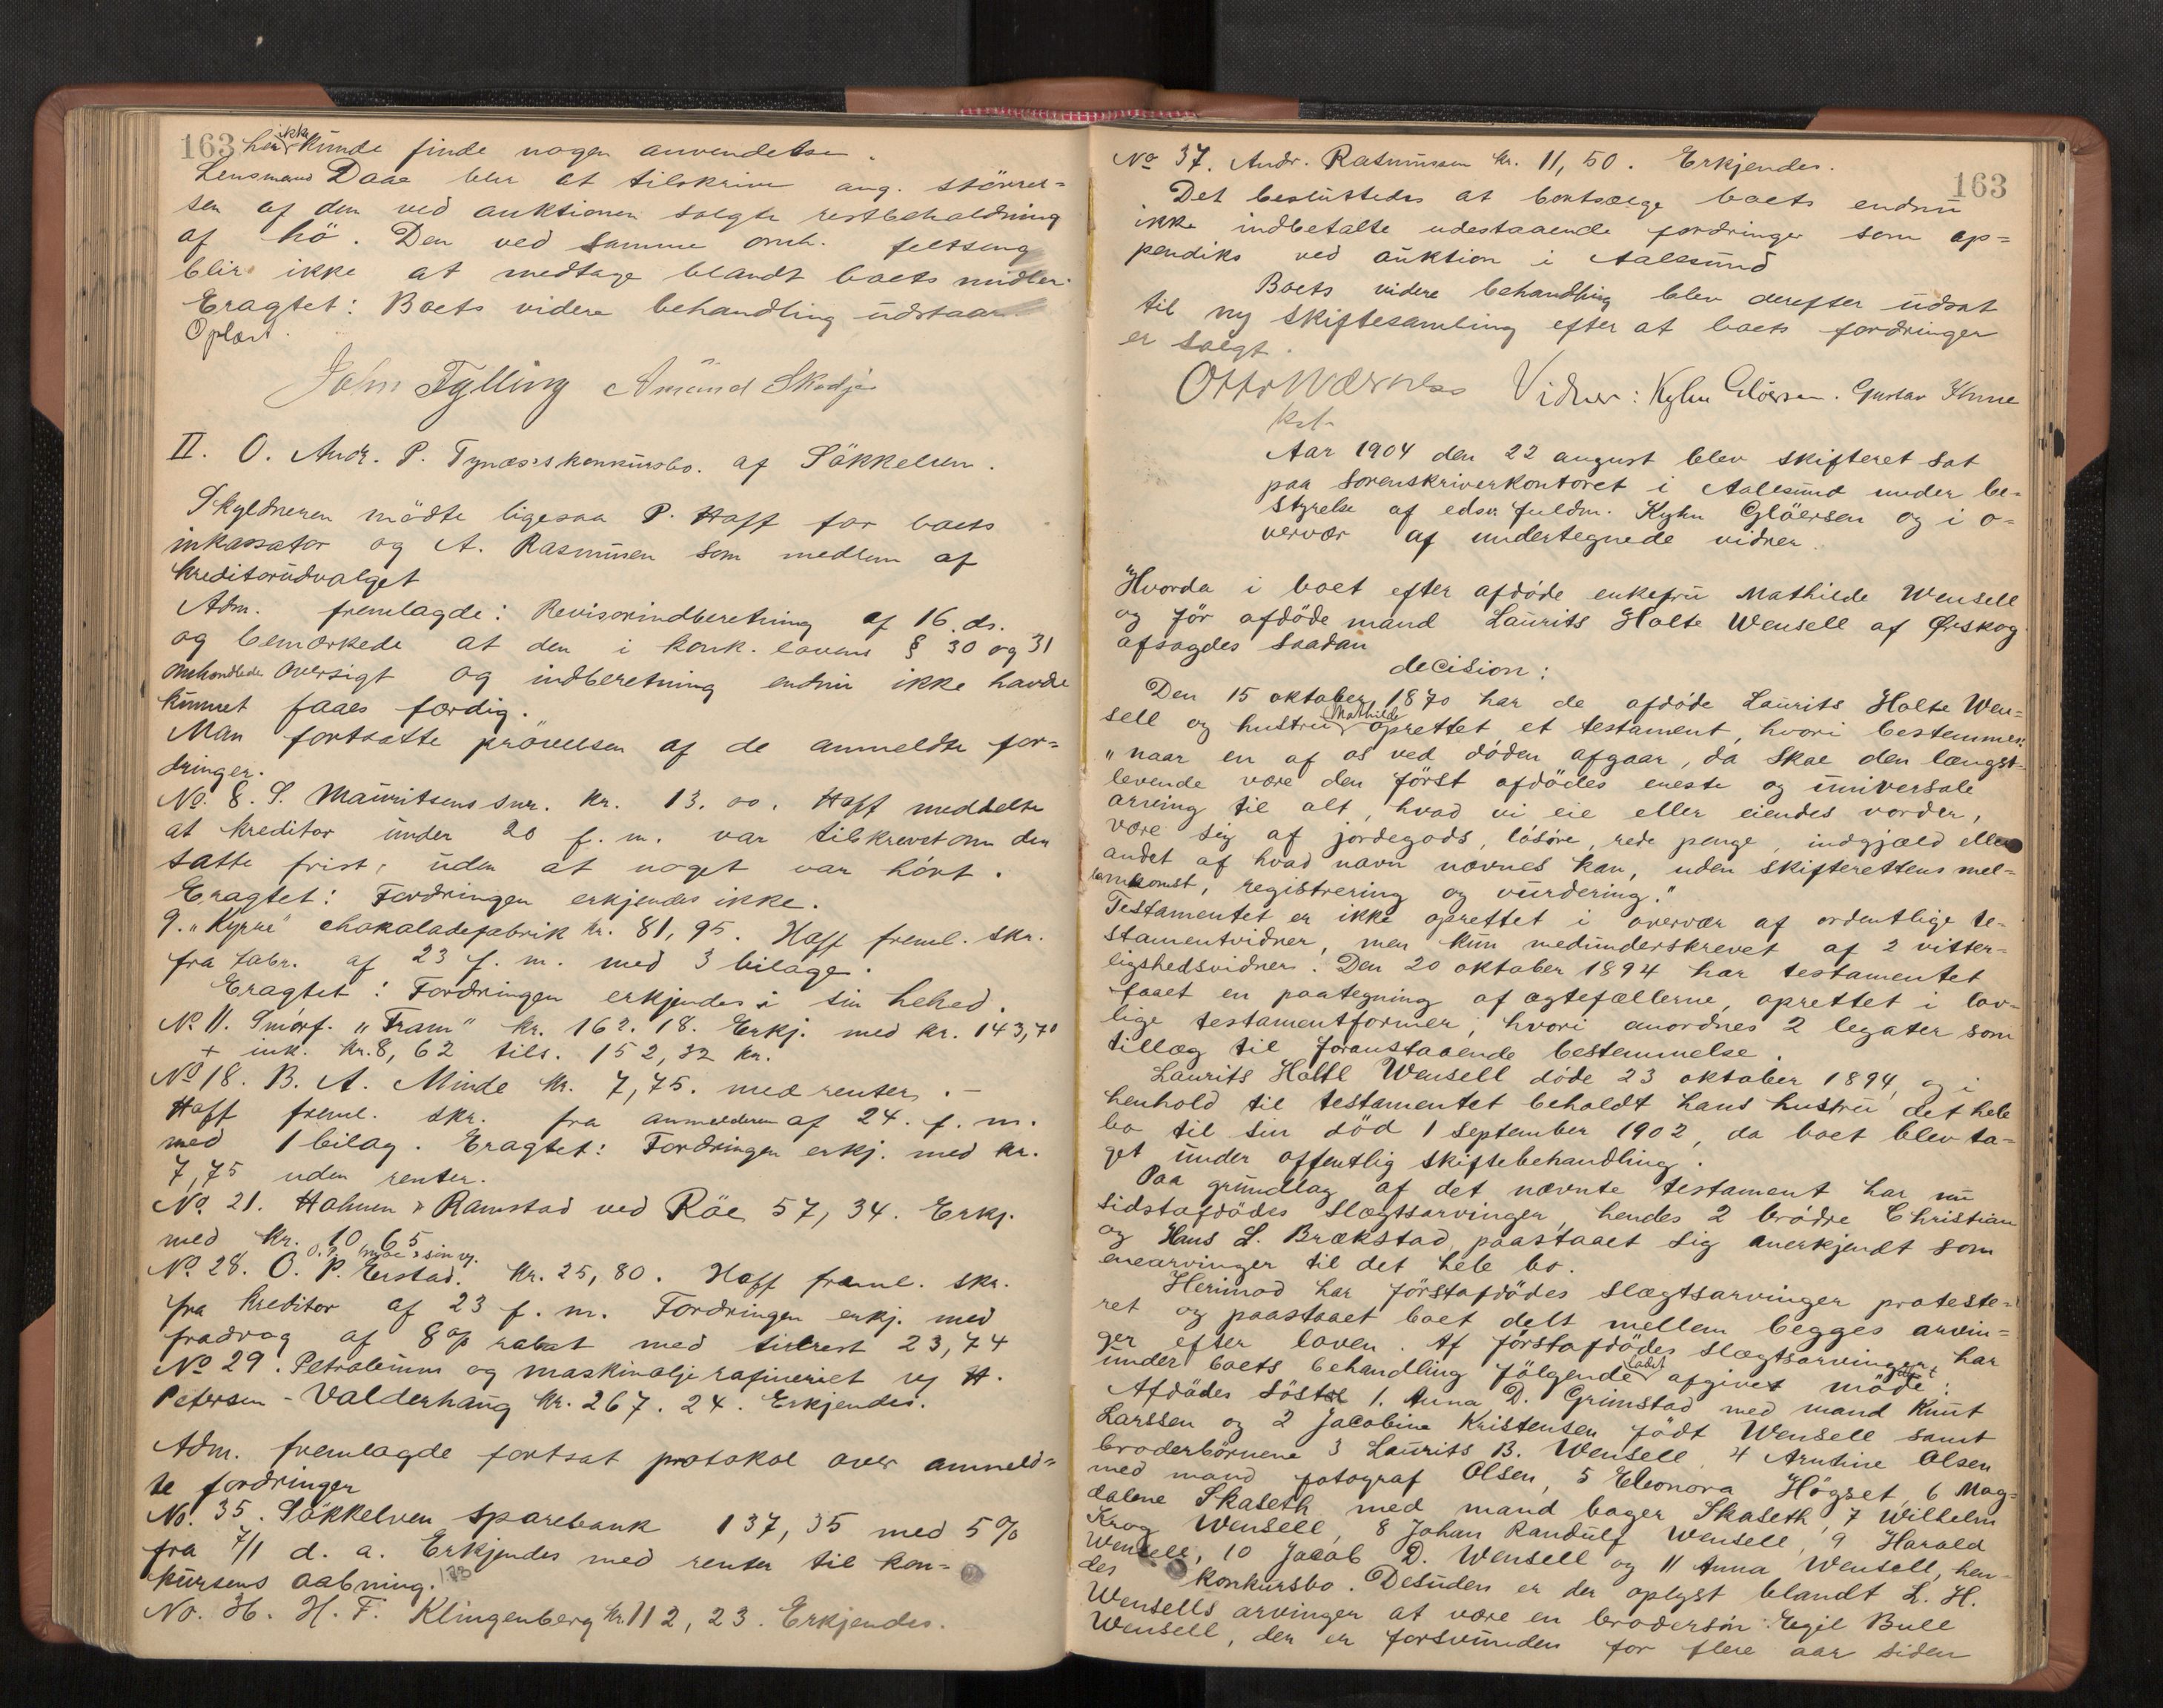 163 her ikke kunde finde nogen anvendelse.
Lensmand Daae blir at tilskrive ang. störrel=
sen af den ved auktionen solgte restbeholdning
af hö. Den ved samme omh. feltseng
blir ikke at medtage blandt boets midler.
Eragtet: Boets videre behandling udstaar.
Oplæst.
John Tylling Amund Skodje
II. O. Andr. P. Tynæs's konkursbo. af Sökkelven.
Skyldneren mödte ligesaa P. Haff for boets
inkassator og A. Rasmussen som medlem af
kreditorudvalget
Adm. fremlagde: Revisorindberetning af 16. ds.
og bemærkede at den i konk. lovens § 30 og 31
omhandlede oversigt og indberetning endnu ikke havde
kunnet faaes færdig.
Man fortsatte prövelsen af de anmeldte for=
dringer.
No. 8. S. Mauritsens Snr. kr. 13.00. Haff meddelte
at kreditor under 20 f. m. var tilskrevet om den
satte frist, uden at noget var hört.
Eragtet: Fordringen erkjendes ikke.
9. "Kyrre" chokoladefabrik kr. 81,95. Haff freml. skr.
fra fabr. af 23 f. m. med 3 bilage.
Eragtet: Fordringen erkjendes i sin helhed.
No 11. Smörf. "Fram" kr. 162.18. Erkj. med kr. 143,70
+ ink. kr. 8,62 tils. 152,32 kr.
No 18. B. A. Minde kr. 7,75. med renter. -
Haff freml. skr. fra anmelderen af 24. f. m.
med 1 bilag. Eragtet: Fordringen erkj. med kr.
7,75 uden renter.
No 21. Holmen & Ramstad ved Röe 57,34. Erkj.
med kr. 10,65
No 28. O. P. Erstad. kr. 25,80. Haff freml. skr.
fra kreditor af 23 f. m. Fordringen erkj. med
fradrag af 8 % rabat med tilrest 23,74
No 29. Petroleums og maskinoljerafineriet v/ H.
Petersen - Valderhaug kr. 267.24. Erkjendes.
Adm. fremlagde fortsat protokol over anmeld=
te fordringer
No. 35. Sökkelven sparebank 137,35 med 5%
fra 7/1 d. a. Erkjendes med renter til kon-
kursens aabning.
No. 36. H. F. Klingenberg kr. 112,23. Erkjendes.
163
No 37. Andr. Rasmussen kr. 11,50. Erkjendes.
Det besluttedes at bortsælge boets endnu
ikke indbetalte udestaaende fordringer som ap=
pendiks ved auktion i Aalesund
Boets videre behandling blev derefter udsat
til ny skiftesamling efter at boets fordringer
er solgt.
Otto Wærness Vidner: Kyhn Glöersen. Gustav
kst.
Aar 1904 den 22 august blev skifteret sat
paa sorenskriverkontoret i Aalesund under be-
styrelse af edsv. fuldm. Kyhn Glöersen og i o-
vervær af undertegnede vidner.
"Hvorda i boet efter afdöde enkefru Mathilde Wensell
og för afdöde mand Laurits Holte Wensell af Ørskog
afsagdes saadan
decision:
Den 15 oktober 1870 har de afdöde Laurits Holte Wen=
sell og hustru Mathilde oprettet et testament, hvori bestemmes:
"naar en af os ved döden afgaar, da skal den længst-
levende være den först afdödes eneste og universale
arving til alt, hvad vi eie eller eiendes vorder,
være sig af jordegods, lösöre, rede penge, indgjæld eller
andet af hvad navn nævnes kan, uden skifterettens mel-
lemkomst, registrering og vurdering."
Testamentet er ikke oprettet i overvær af ordentlige te-
stamentvidner, men kun medunderskrevet af 2 vitter-
lighedsvidner. Den 20 oktober 1894 har testamentet
faaet en paategning af ægtefællerne, oprettet i lov-
lige testamentformer, hvori anordnes 2 legater som
tillæg til foranstaaende bestemmelse.
Laurits Holte Wensell döde 23 oktober 1894, og i
henhold til testamentet beholdt hans hustru det hele
bo til sin död 1 september 1902, da boet blev ta=
get under offentlig skiftebehandling.
Paa grundlag af det nævnte testament har nu
sidstafdödes slægtsarvinger, hendes 2 brödre Christian
og Hans L. Brækstad, paastaaet sig anerkjendt som
enearvinger til det hele bo.
Herimod har förstafdödes slægtsarvinger proteste=
ret og paastaaet boet delt mellem begges arvin=
ger efter loven. Af förstafdödes slægtsarvinger har
under boets behandling fölgende ladet afgivet möde:
Afdödes söstre 1. Anna D. Grimstad med mand Knut
Larssen og 2 Jacobine Kristensen födt Wensell samt
broderbörnene 3 Laurits B. Wensell, 4 Arntine Olsen
med mand fotograf Olsen, 5 Eleonora Högset, 6 Mag=
dalene Skaseth med mand bager Skaseth, 7 Wilhelm
Krog Wensell, 8 Johan Randulf Wensell, 9 Harald
Wensell, 10 Jacob D. Wensell og 11 Anna Wensell, hen-
des konkursbo. Desuden er der oplyst blandt L. H.
Wensells arvinger at være en brodersön: Egil Bull
Wensell, der er forsvunden for flere aar siden